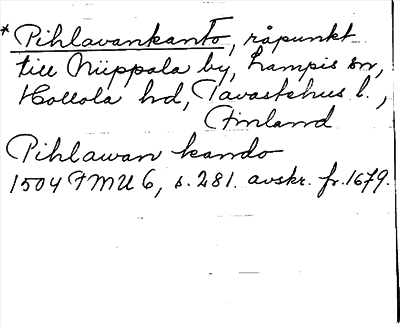 * Pihlavankanto, råpunkt
till Nüppala by, Lampis sn,
Hollola hd, Tavastehus l.,
Finland
Pihlawan kando
1504 FMU 6, s. 281. avskr. fr. 1679.